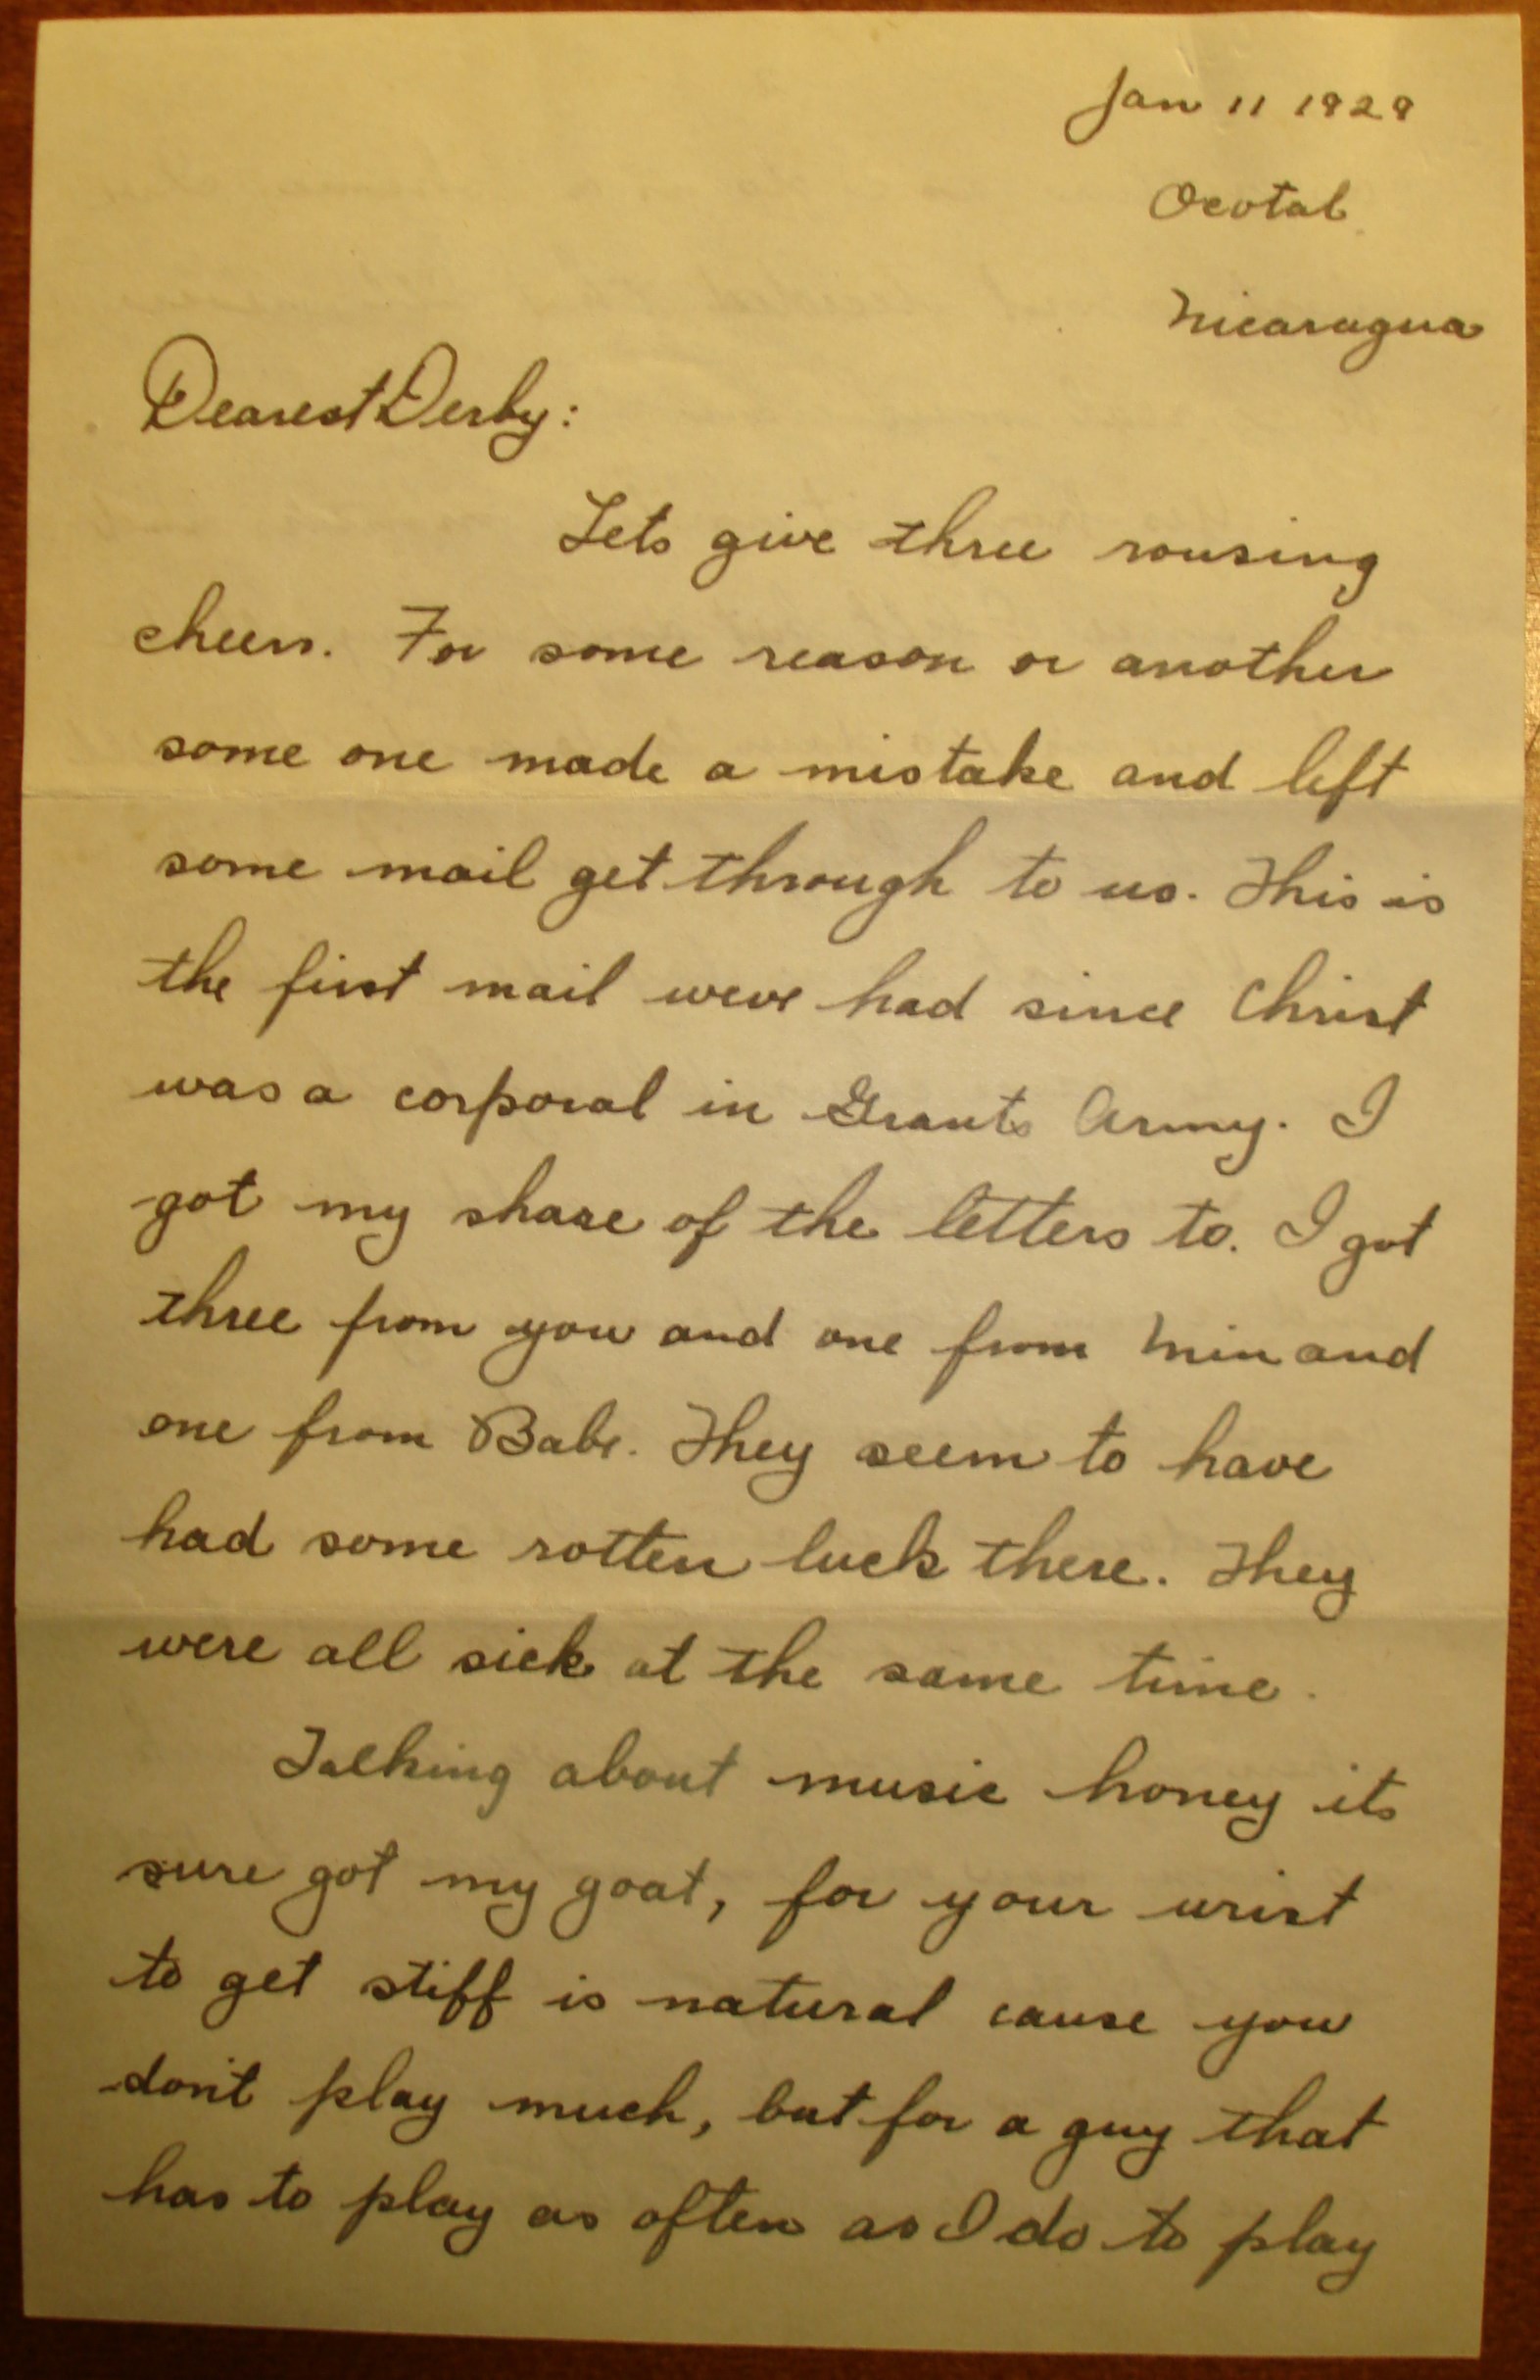 Jan 11 1929
Ocotal
Nicaragua
Dearest Derby:
Lets give three rousing
cheers. For some reason or another
some one made a mistake and left
some mail get through to us. This is
the first mail weve had since Christ
was a corporal in Grants Army. I
got my share of the letters to. I got
three from you and one from Min and
one from Babe. They seem to have
had some rotten luck there. They
were all sick at the same time.
Talking about music honey its
sure got my goat, for your wrist
to get stiff is natural cause you
don't play much, but for a guy that
has to play as often as I do to play